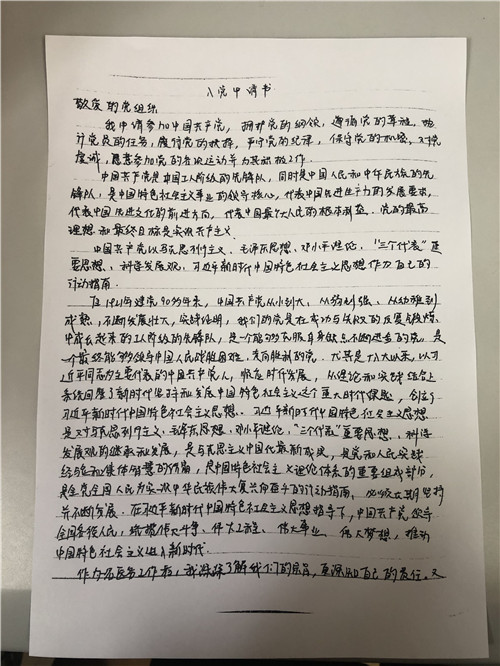 入党申请书
敬爱的党组织
我申请参加中国共产党，拥护党的纲领，遵循党的章程，她
计党员的任务，履行党的义务，严守党的纪律，保守党的机密，对党
虔诚，愿意参加党的各次运动并为其积极工作.
中国共产党是中国工人阶级的先锋队，同时是中国人民和中华民族的先
锋队，是中国特色社会主义事业的领导核心，代表中国先进生产力的发展要求，
代表中国先进文化的前进方向，代表中国最广大人民的根本利益。党的最高
理想和最终目标是实现共产主义.
中国共产党以马克思列宁主义、毛泽东思想、邓小平理论，“三个代表”重
要思想、科学发展观、习近平新时代中国特色社会主义思想作为自己的
行动指南.
在1921年建党90多年来，中国共产党从小到大、从弱到强、从幼稚到
成熟，不断发展壮大，实践证明，我们的党是在成功与失败的反复
中成长起来的工人阶级的先锋队，是一个能够克服自身缺点不断进去的党，是
一个最终能够领导中国人民战胜困难，走向胜利的党. 尤其是十八大以来，以习
近平同志为主要代表的中国共产党人，顺应时代发展，从理论和实践结合上
系统回答了新时代坚持和发展中国特色社会主义这个重大时代课题，创立了
习近平新时代中国特色社会主义思想. 习近平新时代中国特色社会主义思想
是对马克思列宁主义、毛泽东思想、邓小平理论，“三个代表”重要思想、科学
发展观的继承和发展，是马克思主义中国化最新成果，是党和人民实践
经验和集体智慧的结晶，是中国特色社会主义理论体系的重要组成部分，
是全党全国人民为实现中华民族伟大复兴而奋斗的行动指南，必须长期坚持
并不断发展. 在习近平新时代中国特色社会主义思想指导下，中国共产党领导
全国各族人民，统揽伟大斗争、伟大工程、伟大事业、伟大梦想，推动
中国特色社会主义进入新时代.
作为名医务工作者，我深深了解我们的宗旨，更深知自己的责任，又